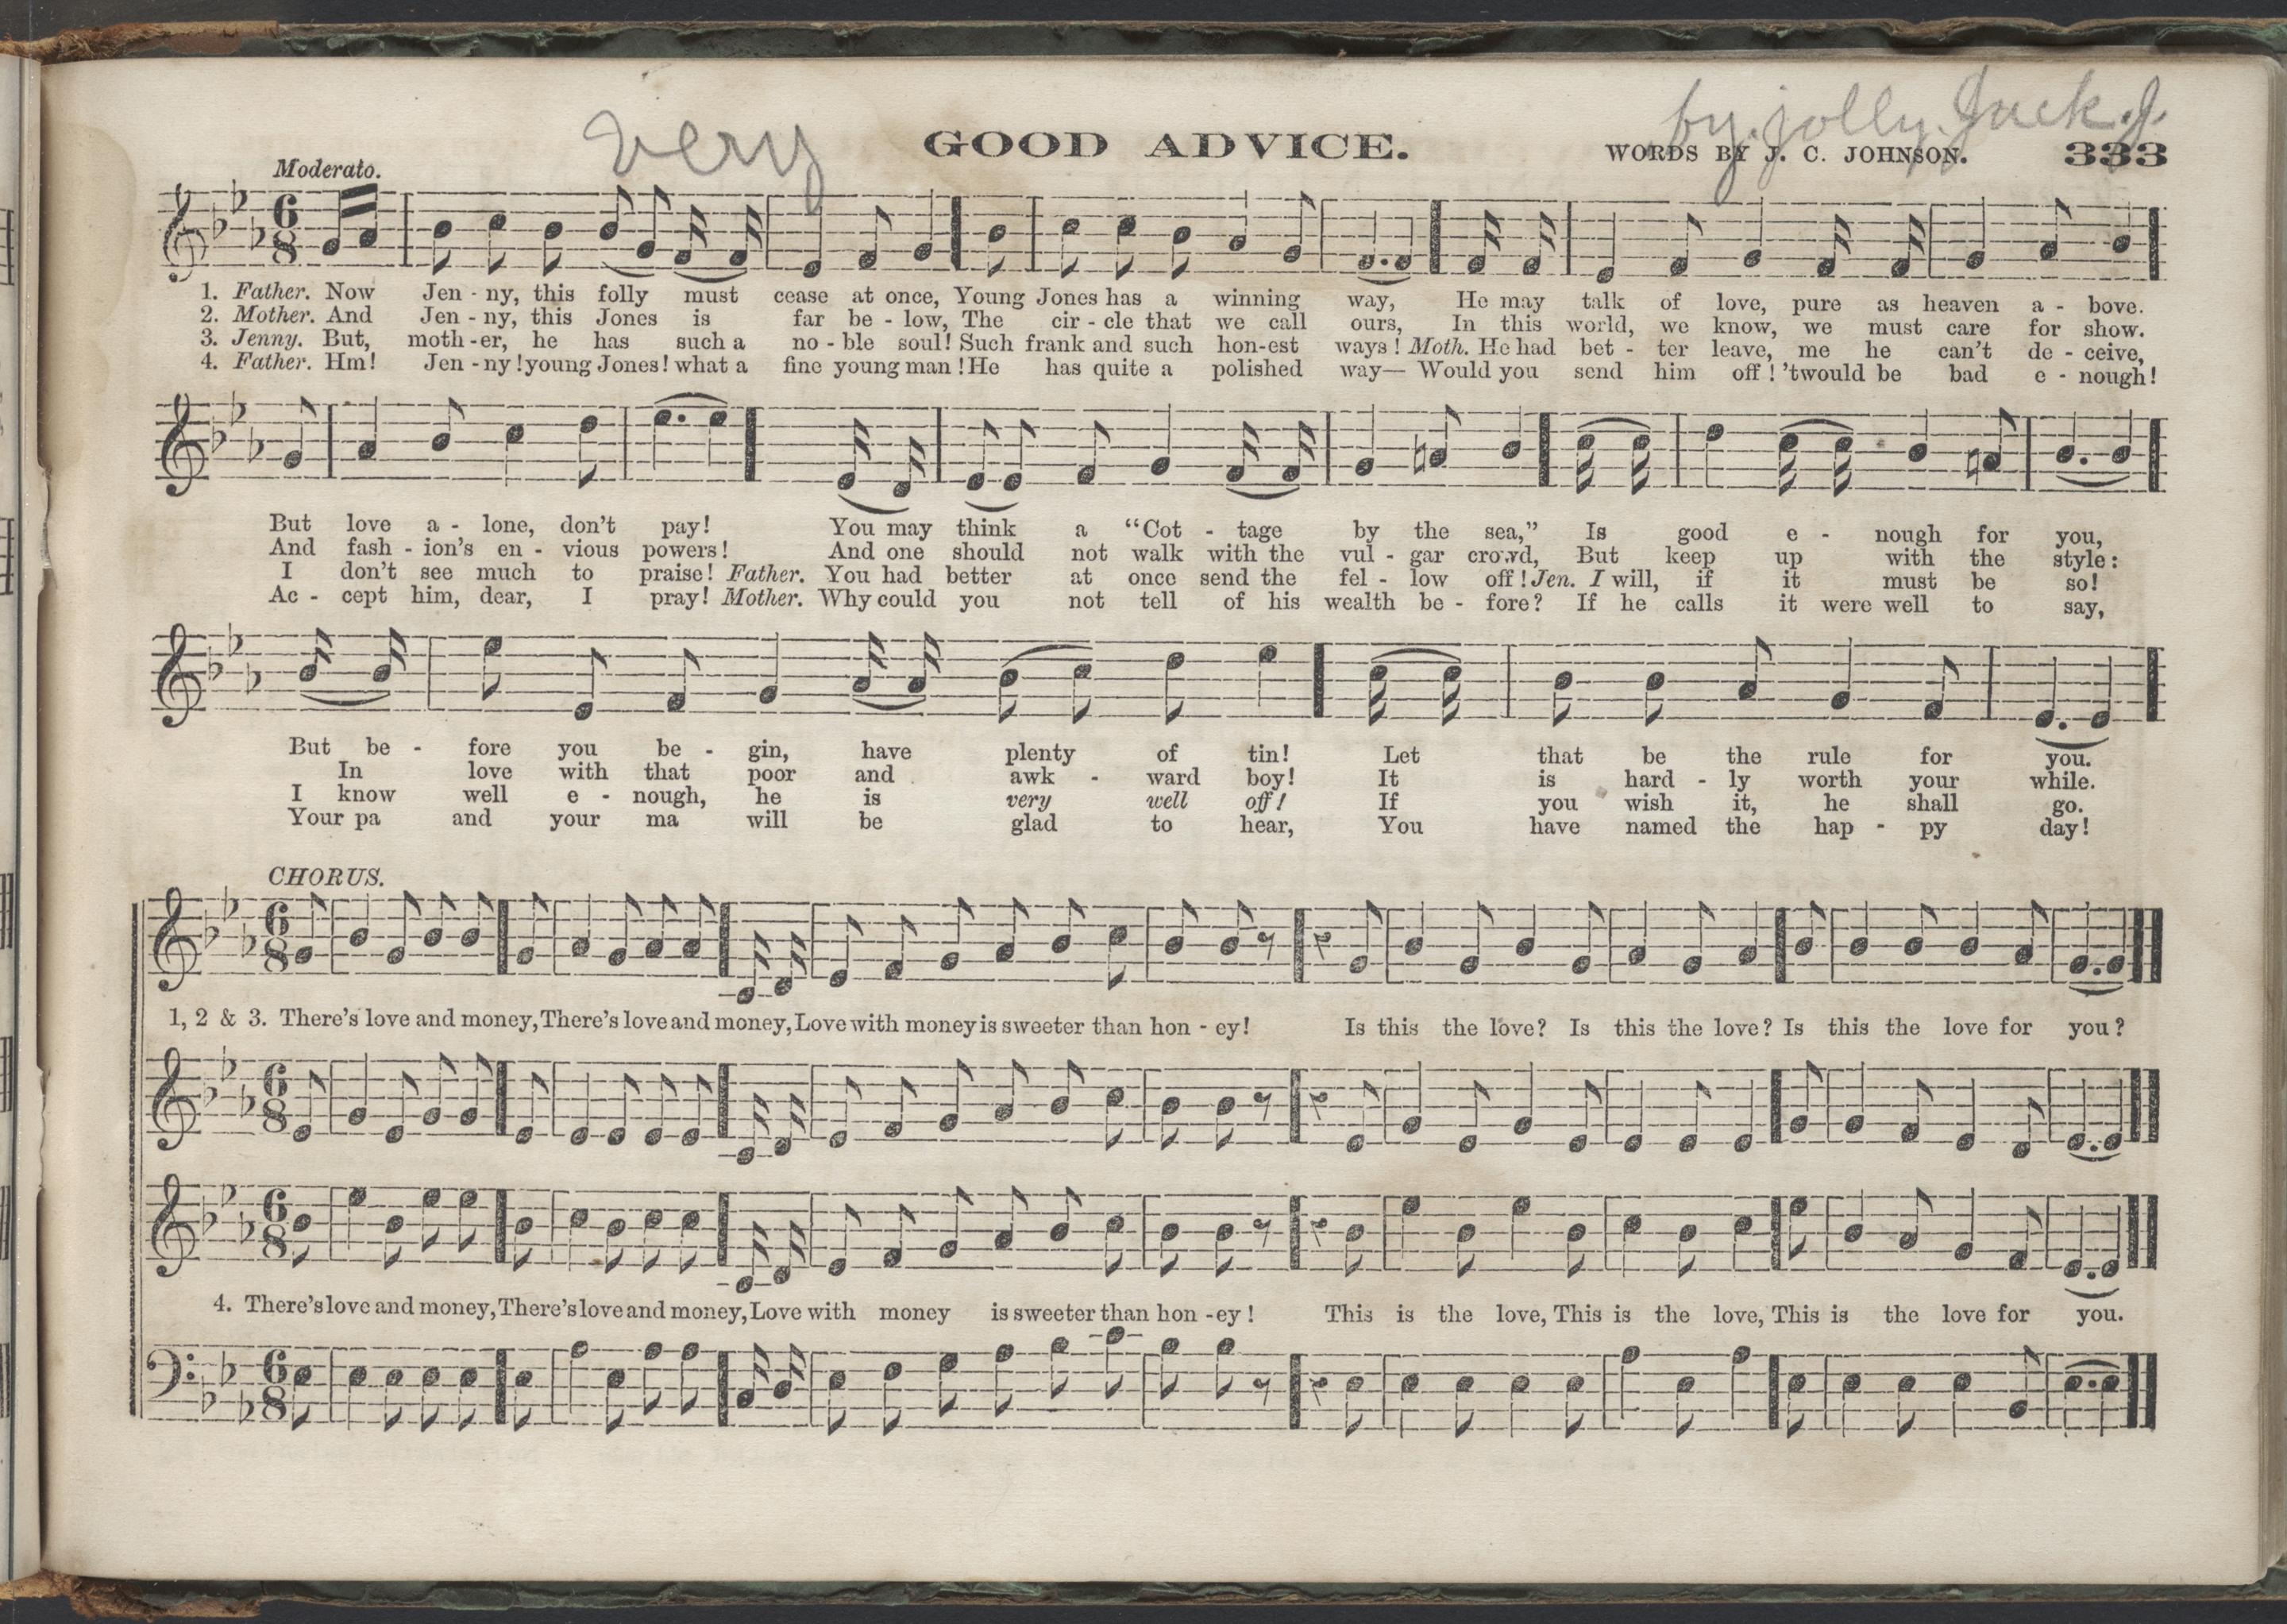 very
by jolly Jack. J.
GOOD ADVICE.
WORDS BY J. C. JOHNSON. 333
Moderato.
6 8
1. Father. Now Jen - ny, this folly must cease at once, Young Jones has a winning way, He may talk of love, pure as heaven a - bove.
2. Mother. And Jen - ny, this Jones is far be - low, The cir - cle that we call ours, In this world, we know, we must care for show.
3. Jenny. But, moth - er, he has such a no - ble soul! Such frank and such hon-est ways! Moth. He had bet - ter leave, me he can't de - ceive,
4. Father. Hm! Jen - ny! young Jones! what a fine young man! He has quite a polished way— Would you send him off! 'twould be bad e - nough!
But love a - lone, don't pay! You may think a "Cot - tage by the sea," Is good e - nough for you,
And fash - ion's en - vious powers! And one should not walk with the vul - gar crowd, But keep up with the style:
I don't see much to praise! Father. You had better at once send the fel - low off! Jen. I will, if it must be so!
Ac - cept him, dear, I pray! Mother. Why could you not tell of his wealth be - fore? If he calls it were well to say,
But be - fore you be - gin, have plenty of tin! Let that be the rule for you.
In love with that poor and awk - ward boy! It is hard - ly worth your while.
I know well e - nough, he is very well off! If you wish it, he shall go.
Your pa and your ma will be glad to hear, You have named the hap - py day!
CHORUS.
6 8
1, 2 & 3. There's love and money, There's love and money, Love with money is sweeter than hon - ey! Is this the love? Is this the love? Is this the love for you?
6 8
6 8
4. There's love and money, There's love and money, Love with money is sweeter than hon - ey! This is the love, This is the love, This is the love for you.
6 8